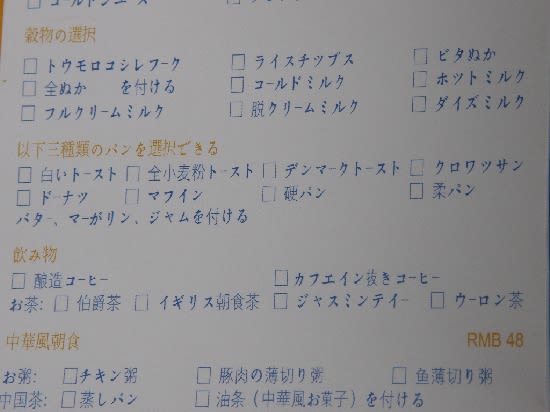 穀物の選択
□ トウモロコシレフーク □ ライスチップス □ ピタぬか
□ 全ぬか を付ける □ コールドミルク □ ホットミルク
□ フルクリームミルク □ 脱クリームミルク □ ダイズミルク
以下三種類のパンを選択できる
□ 白いトースト □ 全小麦粉トースト □ デンマークトースト □ クロワツサン
□ ドーナツ □ マフイン □ 硬パン □ 柔パン
バター、マーガリン、ジャムを付ける
飲み物
□ 醸造コーヒー □ カフエイン抜きコーヒー
お茶: □ 伯爵茶 □ イギリス朝食茶 □ ジャスミンテイー □ ウーロン茶
中華風朝食 RMB 48
お粥: □チキン粥 □ 豚肉の薄切り粥 □ 鱼薄切り粥
中国茶: □ 蒸しパン □ 油条（中華風お菓子）を付ける